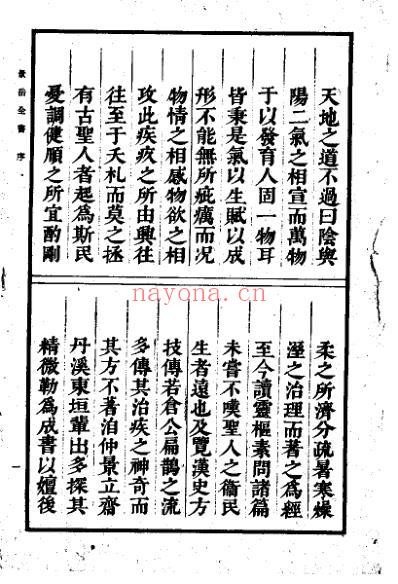 景岳全書 序
天地之道不過曰陰與
陽二氣之相宣而萬物
于以發育人固一物耳
皆秉是氣以生賦以成
形不能無所疵癘而况
物情之相感物欲之相
攻此疾疚之所由興往
往至于夭札而莫之拯
有古聖人者起爲斯民
憂調健順之所宜酌剛
柔之所濟分疏暑寒燥
溼之治理而著之爲經
至今讀靈樞素問諸篇
未嘗不嘆聖人之衞民
生者遠也及覽漢史方
技傳若倉公扁鵲之流
多傳其治疾之神奇而
其方不著洎仲景立齋
丹溪東垣輩出多探其
精微勒爲成書以嬗後
一
nayona.cn